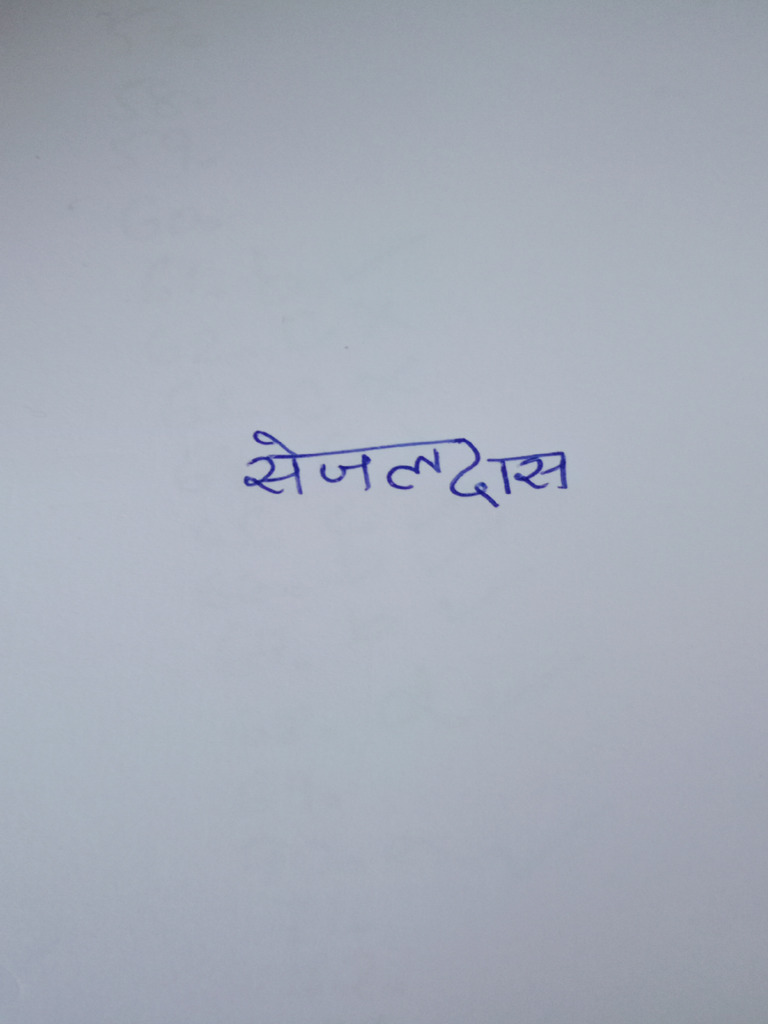 सेजलदास